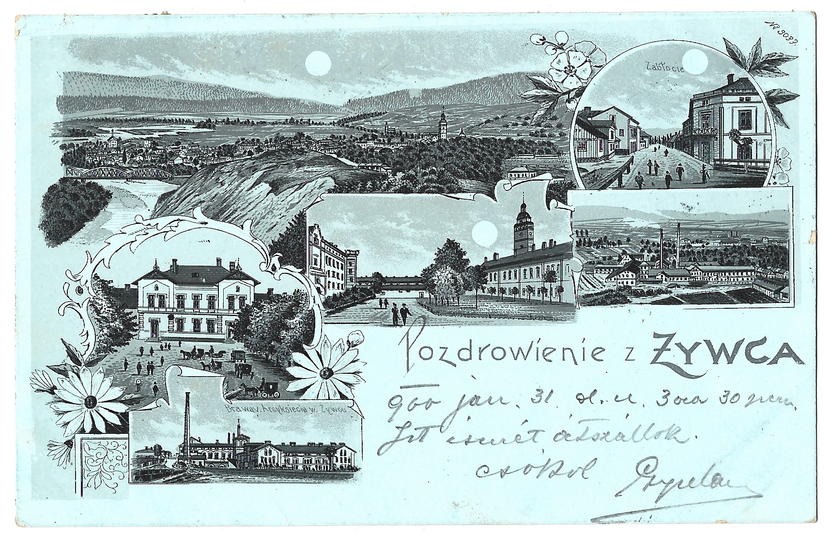 Nr 3093.
Zabłocie
Browar Arcyksięcia w Żywcu
Pozdrowienie z ŻYWCA
900 jan. 31 d. u. 3 óra 30 perc.
Itt ismét átszállok.
csókol Gyula